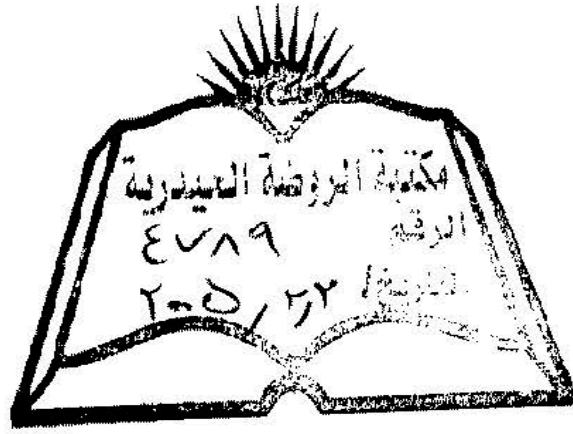 مكتبة الروضة الحيدرية
الرقم ٤٧٨٩
التاريخ